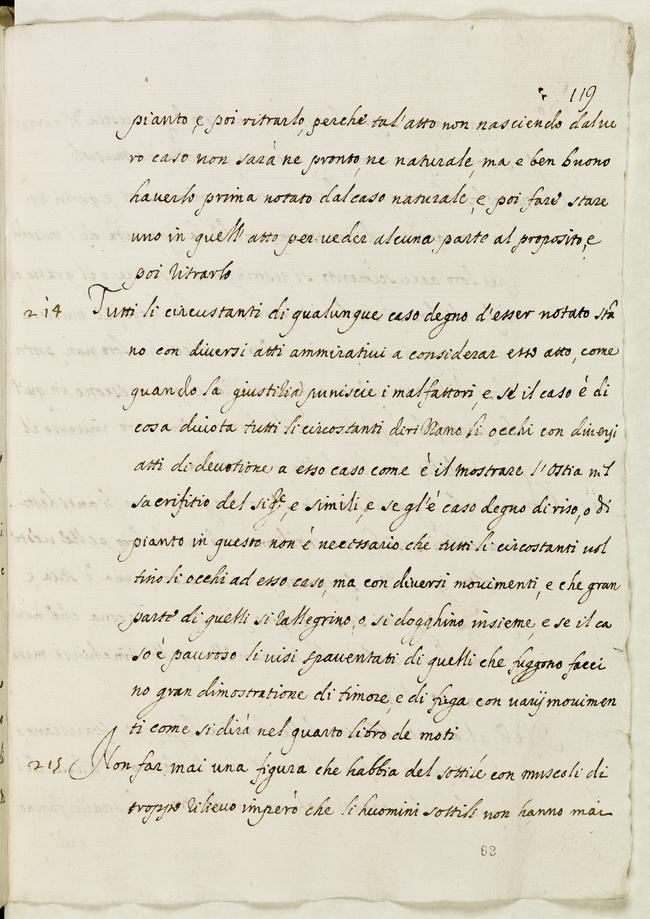 119
pianto, e poi ritrarlo, perche tal'atto non nasciendo dal ve
ro caso non sarà ne pronto, ne naturale, ma e ben buono
haverlo prima notato dal caso naturale, e poi fare stare
uno in quell'atto per veder alcuna parte al proposito, e
poi ritrarlo
214 Tutti li circustanti di qualunque caso degno d'esser notato stā
no con diversi atti ammirativi a considerar esso atto, come
quando la giustitia puniscie i malfattori, e se il caso è di
cosa divota tutti li circostanti derizzano li occhi con diversi
atti di devotione a esso caso come è il mostrare l'Ostia nel
sacrifitio del sig.re, e simili, e se gl'è caso degno di riso, o di
pianto in questo non è necessario che tutti li circostanti vol
tino li occhi ad esso caso, ma con diversi movimenti, e che gran
parte di quelli si rallegrino, o si dogghino insieme, e se il ca
so è pauroso li visi spaventati di quelli che fuggono facci
no gran dimostratione di timore, e di fuga con varij movimen
ti come si dirà nel quarto libro de moti
215 Non far mai una figura che habbia del sottile con muscoli di
troppo rilievo imperò che li huomini sottili non hanno mai
63